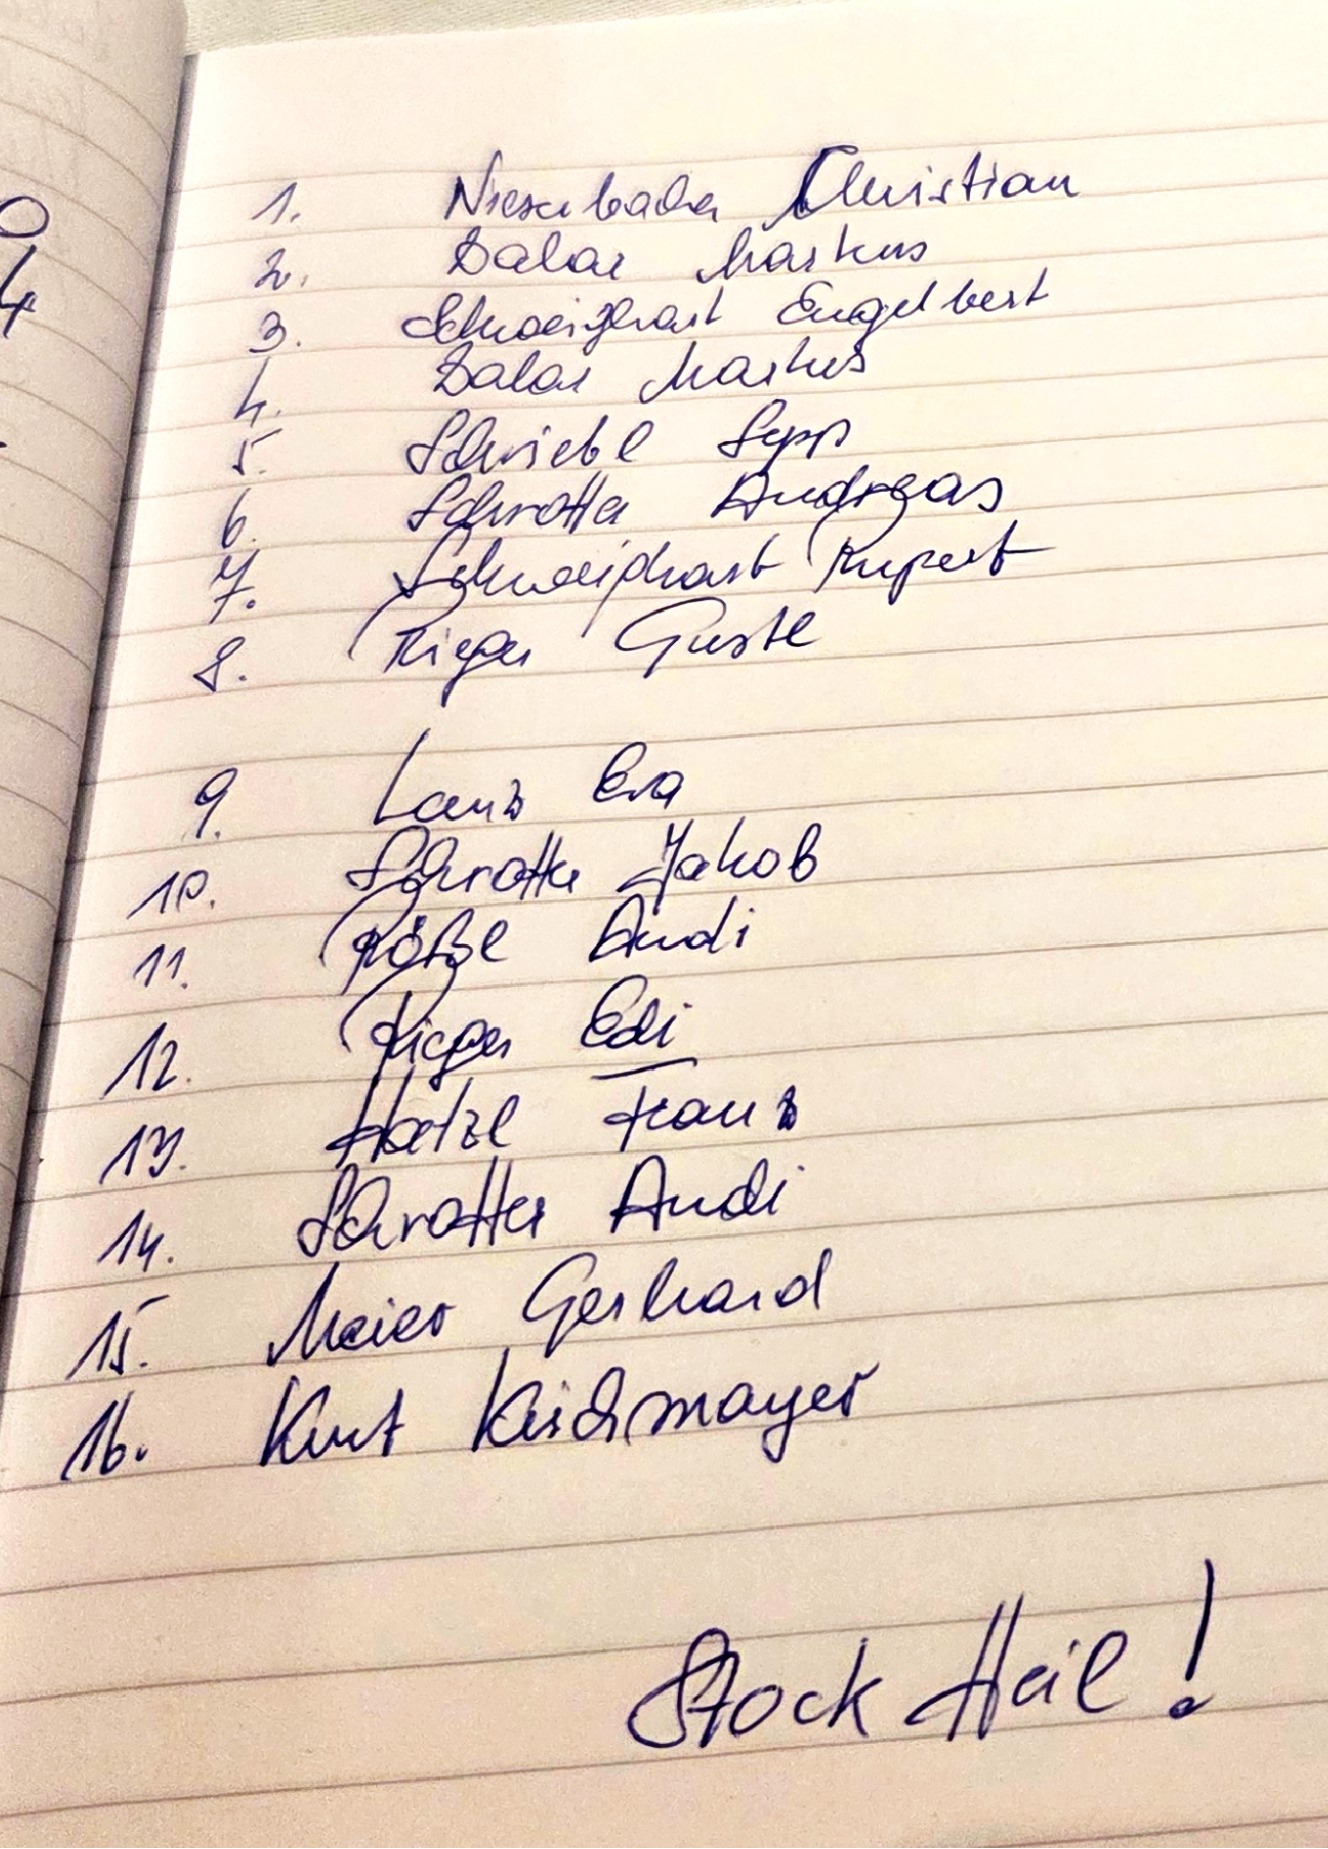 1. Christian
2. Markus
3. Schweighart Engelbert
4. Markus
5. Schriebl Sepp
6. Schrotter Andreas
7. Schweighart Rupert
8. Rieger Gustl
9. Lanz Eva
10. Schrotter Jakob
11. Rößl Andi
12. Rieger Edi
13. Hötzl Franz
14. Schrotter Andi
15. Meier Gerhard
16. Kurt Kirchmayer
Stock Heil!